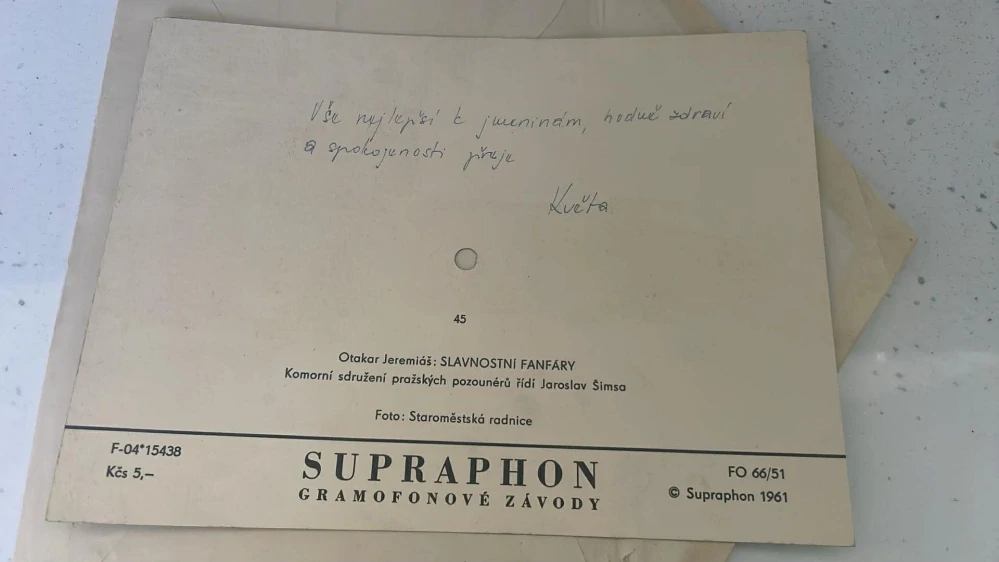 Vše nejlepší k jmeninám, hodně zdraví
a spokojenosti přeje
Květa
45
Otakar Jeremiáš: SLAVNOSTNÍ FANFÁRY
Komorní sdružení pražských pozounérů řídí Jaroslav Šimsa
Foto: Staroměstská radnice
F-04*15438
Kčs 5,–
SUPRAPHON
GRAMOFONOVÉ ZÁVODY
FO 66/51
© Supraphon 1961